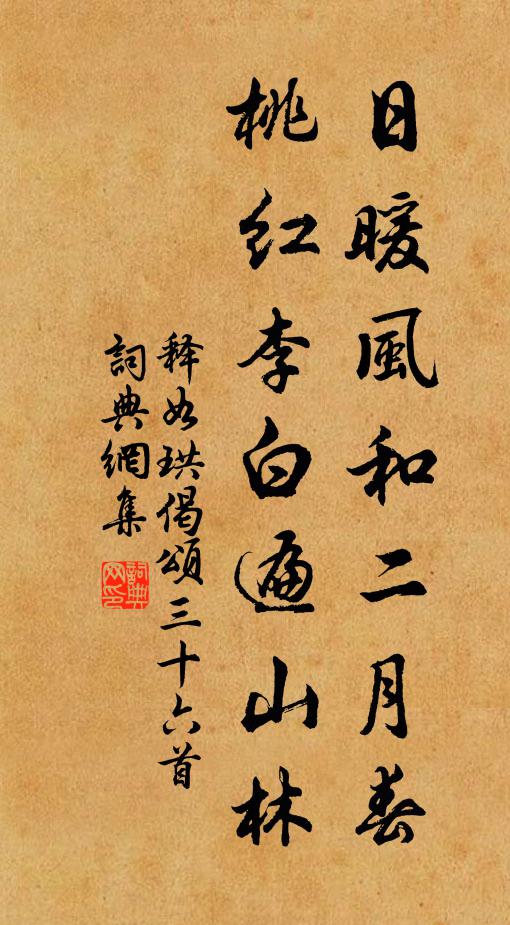 日暖風和二月春
桃紅李白遍山林
释如珙偈頌三十六首
詞典網集
詞典网印